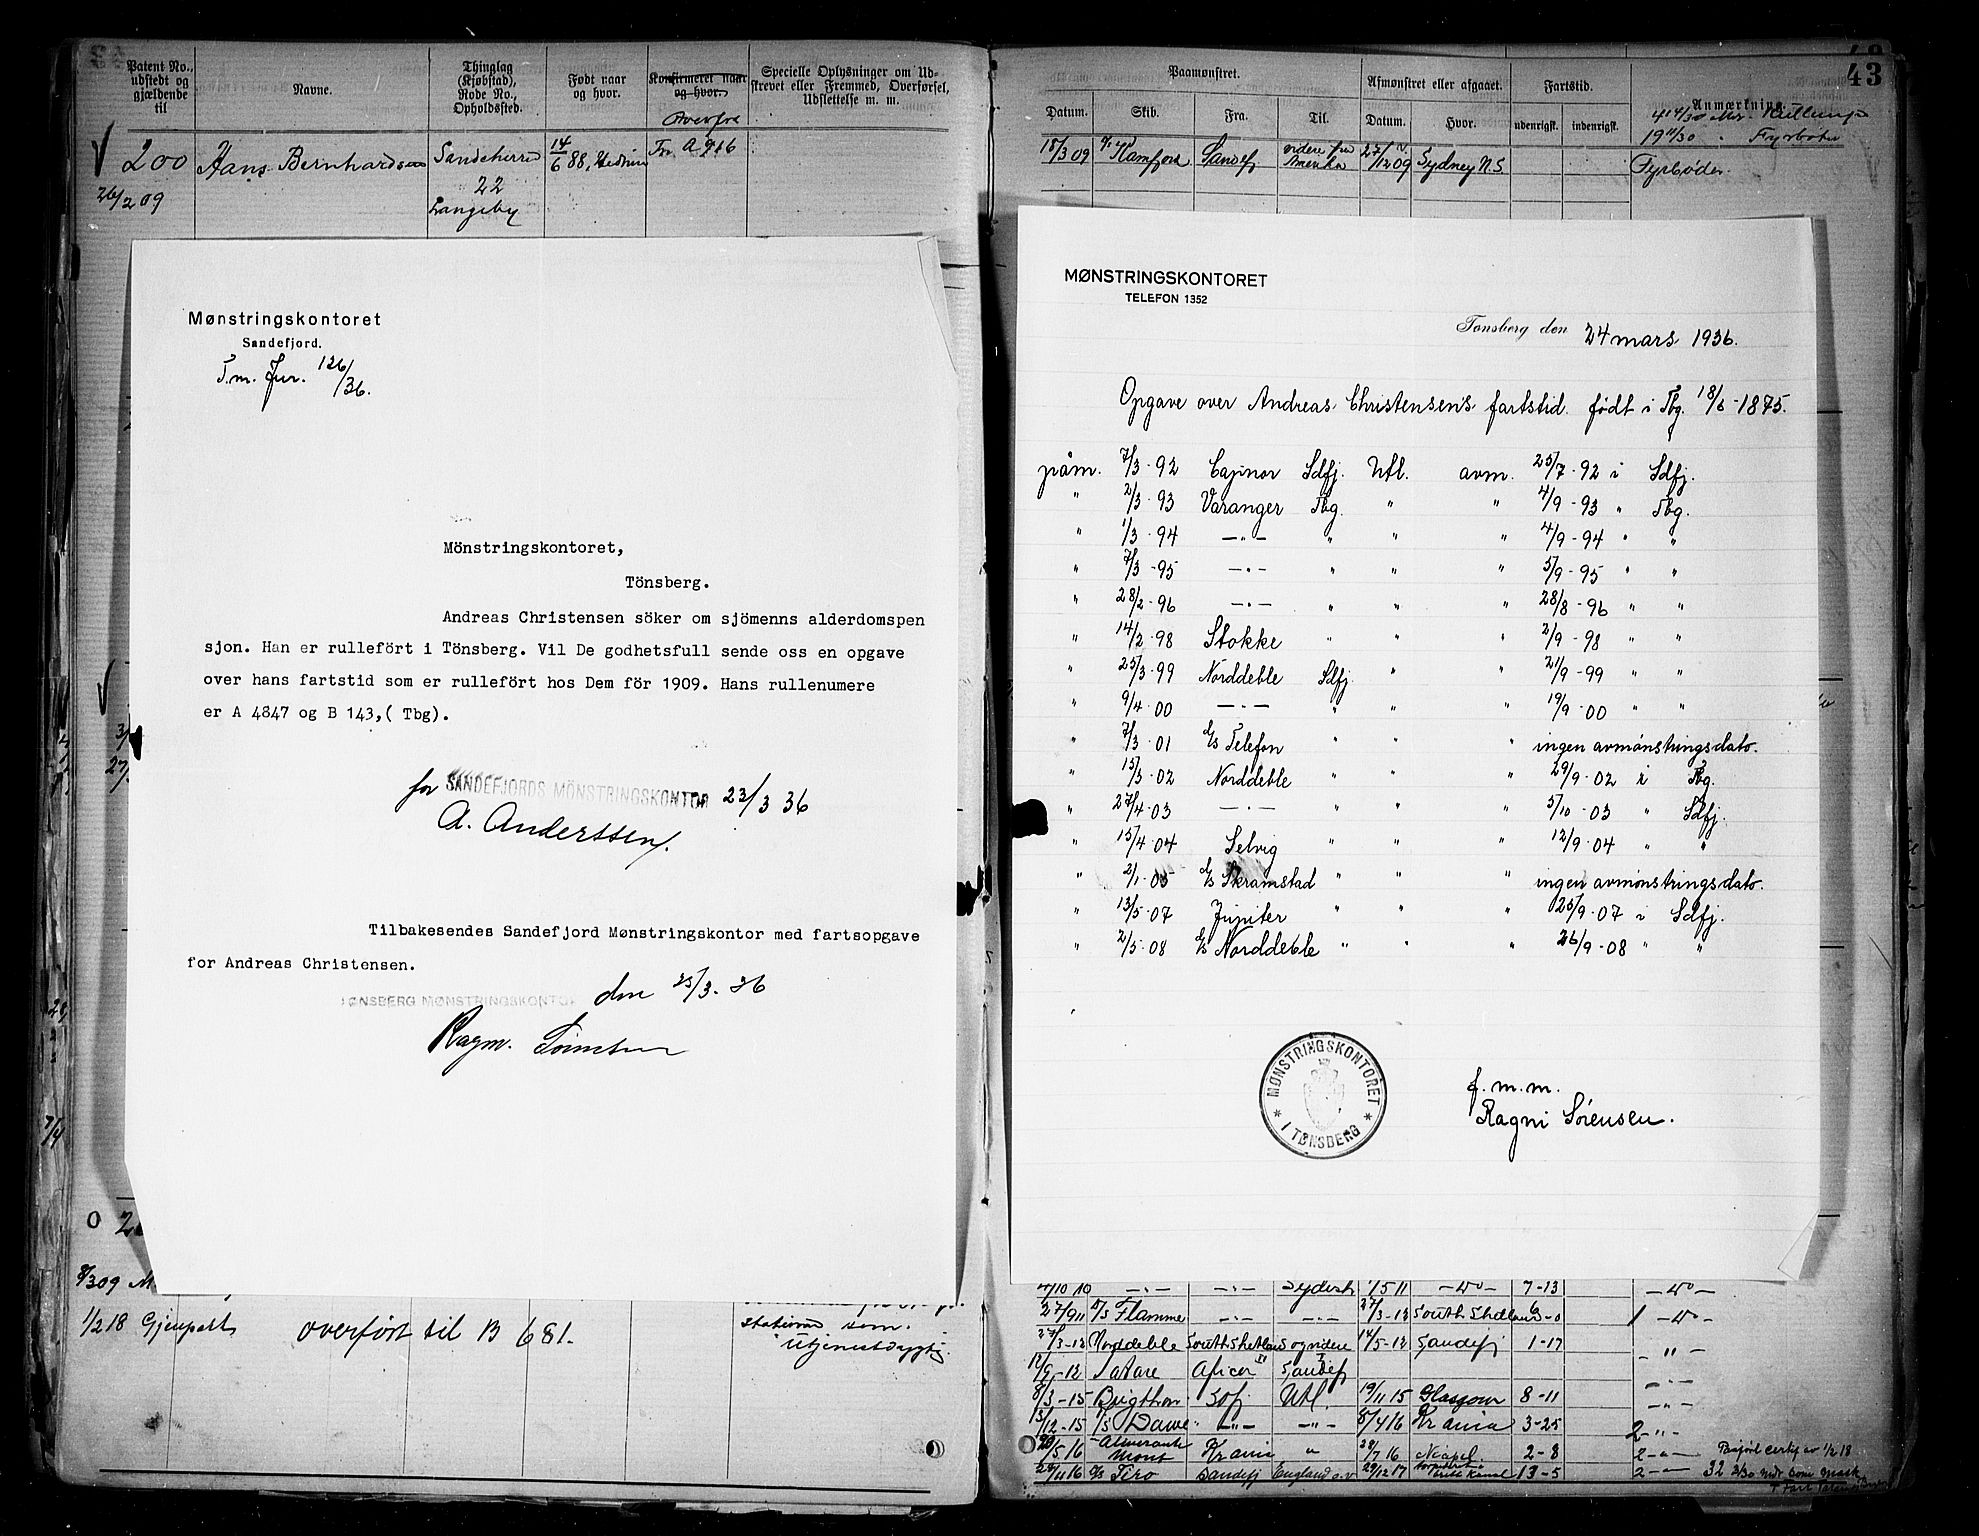 43
Patent No., udstedt og gjældende til
Navne.
Thinglag (Kjøbstad), Rode No., Opholdssted.
Født naar og hvor.
Konfirmeret naar og hvor.
Specielle Oplysninger om Udskrevet eller Fremmed, Overførsel, Udslettelse m. m.
Paamønstret.
Afmønstret eller afgaaet.
Fartstid.
Anmærkning.
Datum. Skib. Fra. Til. Datum. Hvor. udenrigsk. indenrigsk.
200 Hans Bernhardsen Sandeherred 14/6 88 Fr A 916
26/2 09 22
Langeby
18/3 09 Sandefj 09 Sydney N.S. Fyrbøder
Mønstringskontoret
Sandefjord.
T.m. Jur. 126/36.
Mönstringskontoret,
Tönsberg.
Andreas Christensen söker om sjömenns alderdomspen
sjon. Han er rullefört i Tönsberg. Vil De godhetsfull sende oss en opgave
over hans fartstid som er rullefört hos Dem för 1909. Hans rullenumere
er A 4847 og B 143,( Tbg).
for SANDEFJORDS MÖNSTRINGSKONTOR 23/3 36
A. Anderssen.
Tilbakesendes Sandefjord Mønstringskontor med fartsopgave
for Andreas Christensen.
TØNSBERG MØNSTRINGSKONTOR den 25/3. 36
Ragn.
8/3 09
1/2 18 Gjenpart overført til B 681.
som
utjenestdygtig
MØNSTRINGSKONTORET
TELEFON 1352
Tønsberg den 24 mars 1936.
Opgave over Andreas Christensen's fartstid. født i Tbg. 18/6-1875.
påm. 7/3-92 Capinor Sdfj. Utl. avm. 25/7-92 i Sdfj.
" 2/3-93 Varanger Tbg. " " 4/9-93 " Tbg.
" 1/3-94 —"— " " " 4/9-94 " "
" 7/3-95 —"— " " " 5/9-95 " "
" 28/2-96 —"— " " " 28/8-96 " "
" 14/2-98 Stokke " " " 2/9-98 " "
" 25/3-99 Norddeble Sdfj " " 21/9-99 " "
" 9/4-00 —"— " " " 19/9-00 " "
" 7/3-01 d/s Telefon " " " ingen avmönstringsdato.
" 15/3-02 Norddeble " " " 29/9-02 i Tbg.
" 27/4-03 —"— " " " 5/10-03 " Sdfj.
" 15/4-04 Selvig " " " 12/9-04 " "
" 2/1-05 d/s Skramstad " " " ingen avmönstringsdato.
" 13/5-07 Jupiter " " " 25/9-07 i Sdfj.
" 2/5-08 d/s Norddeble " " " 26/9-08 " "
MØNSTRINGSKONTORET
* I TØNSBERG *
f.m.m.
Ragni Sörensen.
4/10 10 —"— —"— 1/5 11 —"— 7-13
27/9 11 D/S Flamme —"— —"— 27/3-12 South Shetland
27/3-12 Norddeble South Shetland 14/5-12 Sandefj 1-17
8/3-15 Utl. 19/11 15 Glasgow 8-11
13/12-15 —"— —"— 5/4 16 Kr ania 3-25
20/5 16 Kr ania " 28/7 16 Neapel 2-8
24/11 16 D/S Tiro Sandefj England 29/12 17 13-5